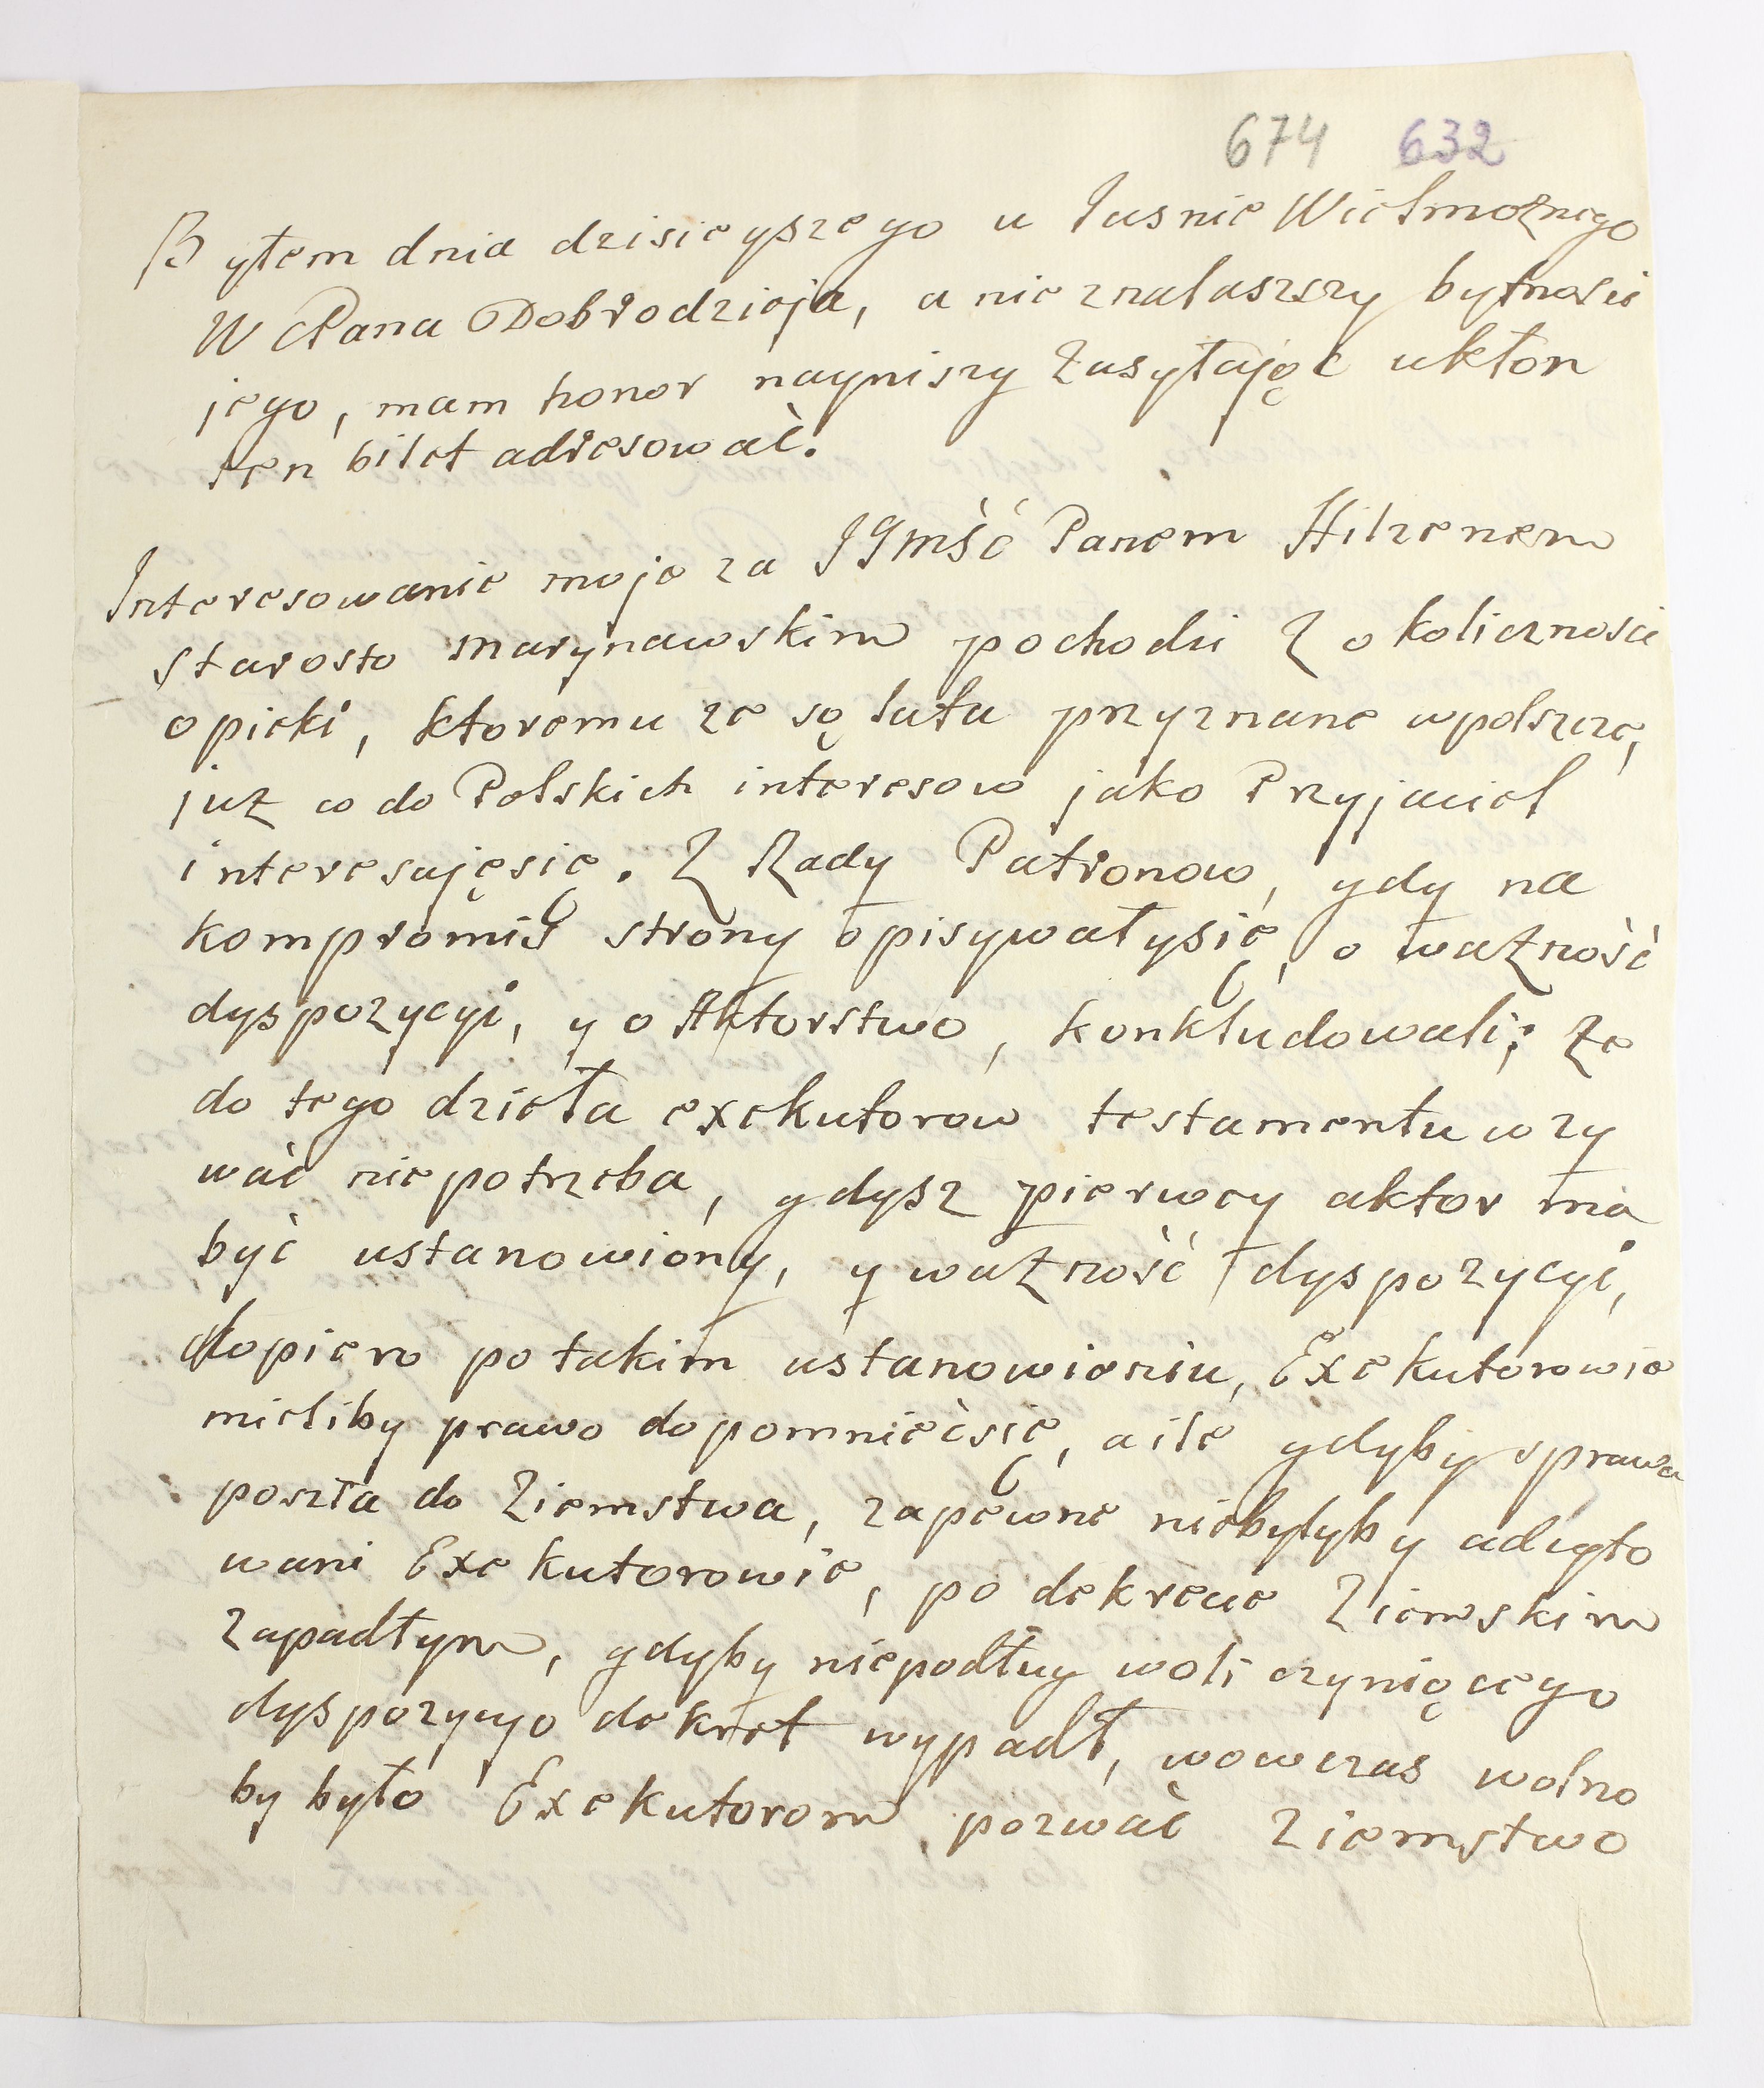 674 632
Byłem dnia dzisieyszego u Jasnie Wielmożnego
W Pana Dobrodzieja, a nieznalaszszy bytności
jego, mam honor nayniszy zasyłając ukłon
ten bilet adresować.
Interesowanie moje za JGmść Panem Hilzenem
Starosto Marynawskim pochodzi z okoliczności
opieki, ktoremu ze są lata przyznane wpolszcze,
już co do Polskich interesow jako Przyjaciel
interesujęsię. Z Rady Patronow, gdy na
kompromis strony opisywałysię, o ważność
dyspozycyi, y o Aktorstwo, konkludowali; że
do tego dzieła exekutorow testamentu wzy
wać niepotrzeba, gdysz pierwey aktor ma
być ustanowiony, y ważność dyspozycyi,
dopiero po takim ustanowieniu, Exekutorowie
mieliby prawo dopomniećsię, a ile gdyby sprawa
poszła do Ziemstwa, zapewne niebyłyby adcyto
wani Exekutorowie, po dekrecie Ziemskim
zapadłym, gdyby niepodług woli czyniącego
dyspozycyo dekret wypadł, wowczas wolno
by było Exekutorom pozwać Ziemstwo